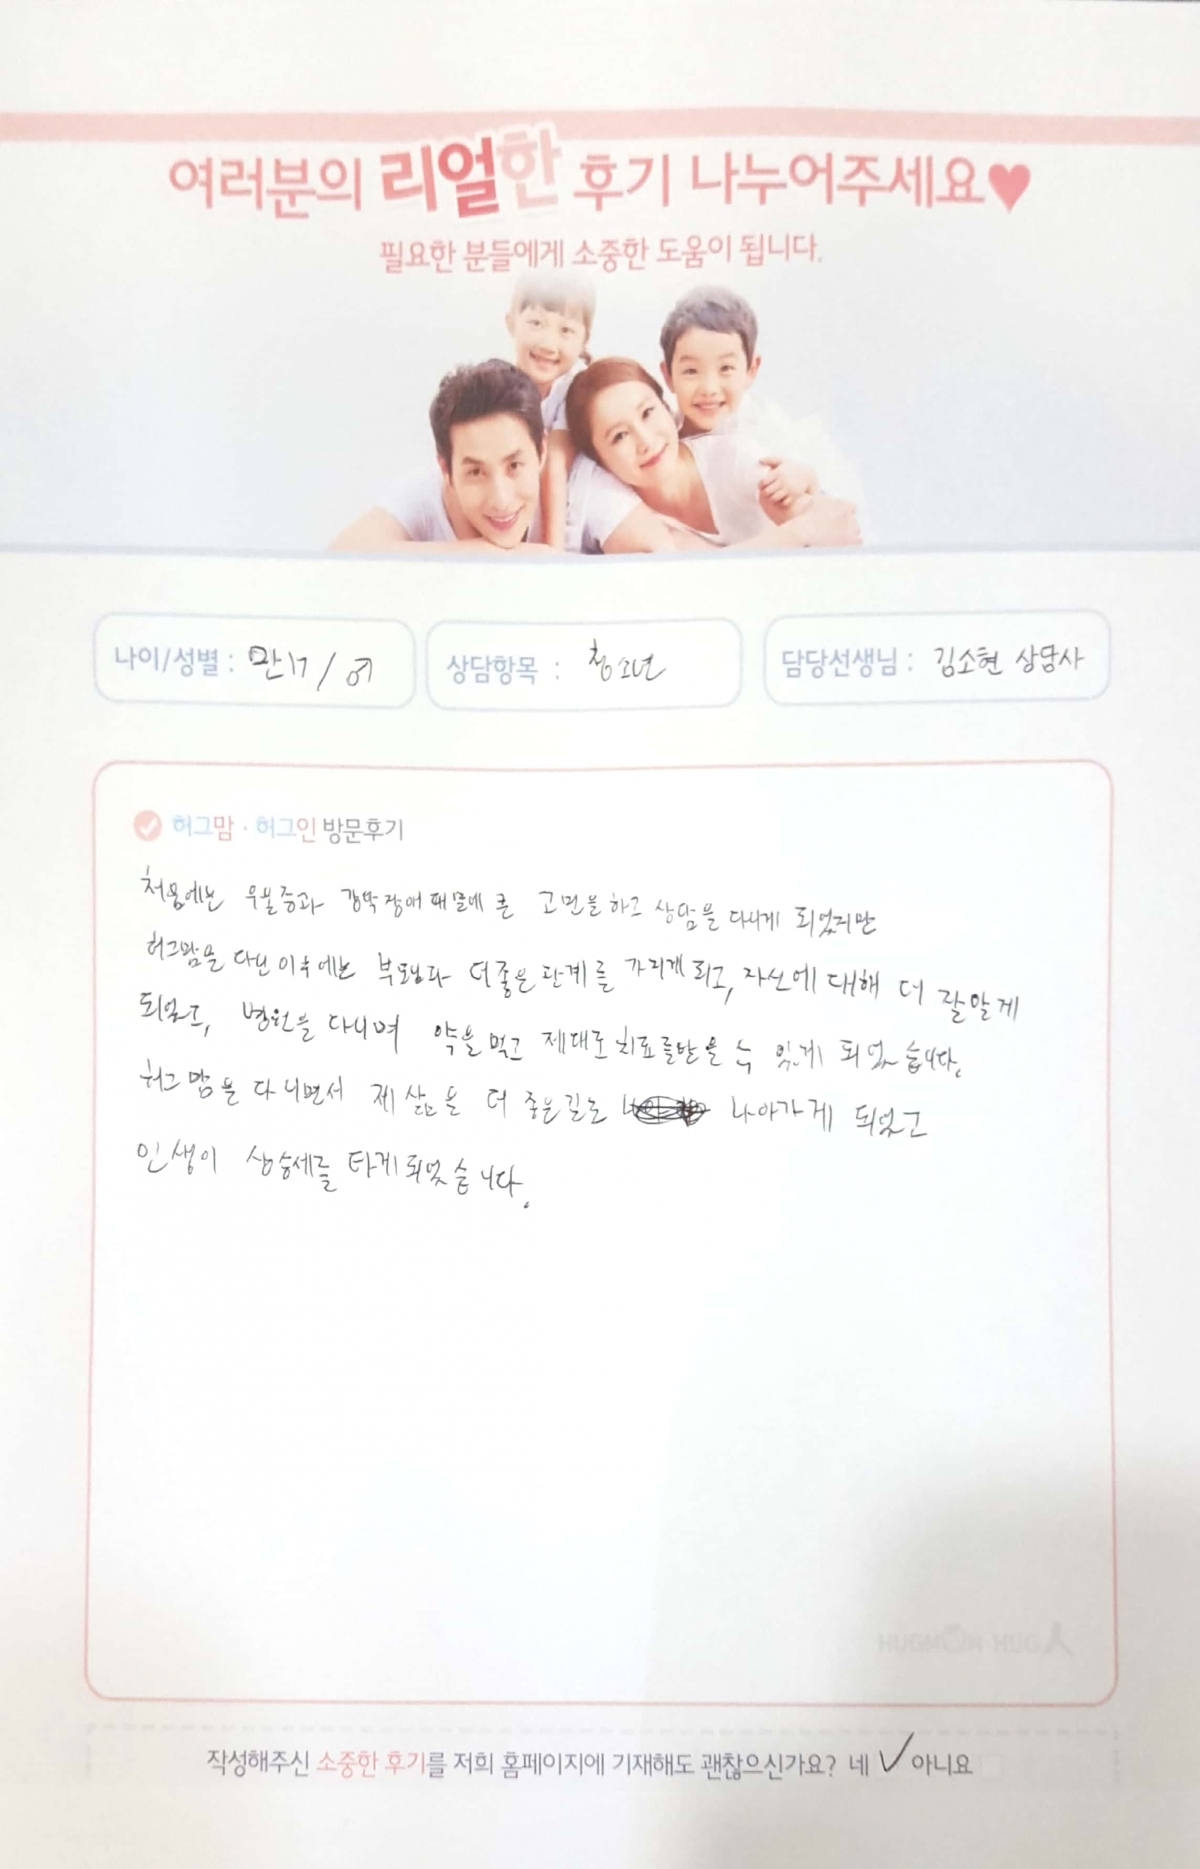 여러분의 리얼한 후기 나누어주세요♥
필요한 분들에게 소중한 도움이 됩니다.
나이/성별 : 만17 / 여
상담항목 : 청소년
담당선생님 : 김소현 상담사
허그맘 · 허그인 방문후기
처음에는 우울증과 강박장애 때문에 큰 고민을 하고 상담을 다니게 되었지만
허그맘을 다닌 이후에는 부모님과 더 좋은 관계를 가지게 되고, 자신에 대해 더 잘 알게
되었고, 병원을 다니며 약을 먹고 제대로 치료를 받을 수 있게 되었습니다.
허그맘을 다니면서 제 삶을 더 좋은 길로 나아가게 되었고
인생이 상승세를 타게 되었습니다.
작성해주신 소중한 후기를 저희 홈페이지에 기재해도 괜찮으신가요? 네 ✓ 아니요